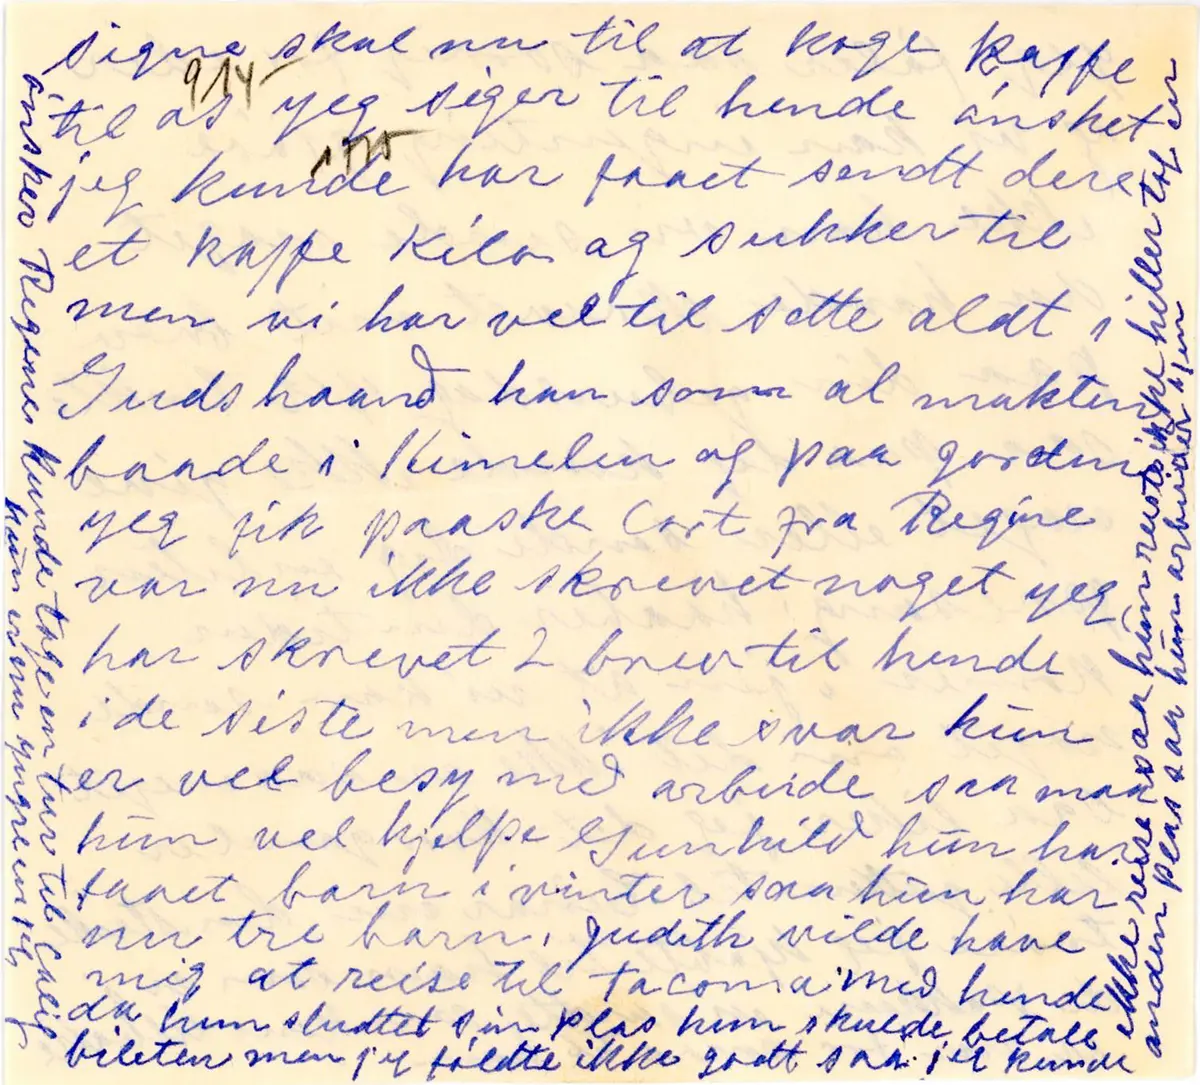 signe skal nu til at koge kaffe
914-
til os yeg siger til hende ánsket
1775
jeg kunde har faaet sendt dere
et kaffe kilo ag sukker til
men vi har vel til sette aldt i
Guds haand han som al makten
baade i Himelen og paa jorden
yeg fik paaske Cort fra Regine
var nu ikke skrevet noget yeg
har skrevet 2 brev til hende
i de siste men ikke svar hun
er vel besy med arbeide saa maa
hun vel hjelpe Gunhild hun har
faaet barn i vinter saa hun har
nu tre barn, Judith vilde have
mig at reise til Tacoma med hende
da hun sludtet sin plas hun skulde betale
bileten men jeg földte ikke godt saa jeg kunde
ikke reise saa hun reiste ikke heller tog en
anden plas saa hun arbeider igen
ónsker Regines kunde tage en turv til Calif
hun er nu yngre en jeg